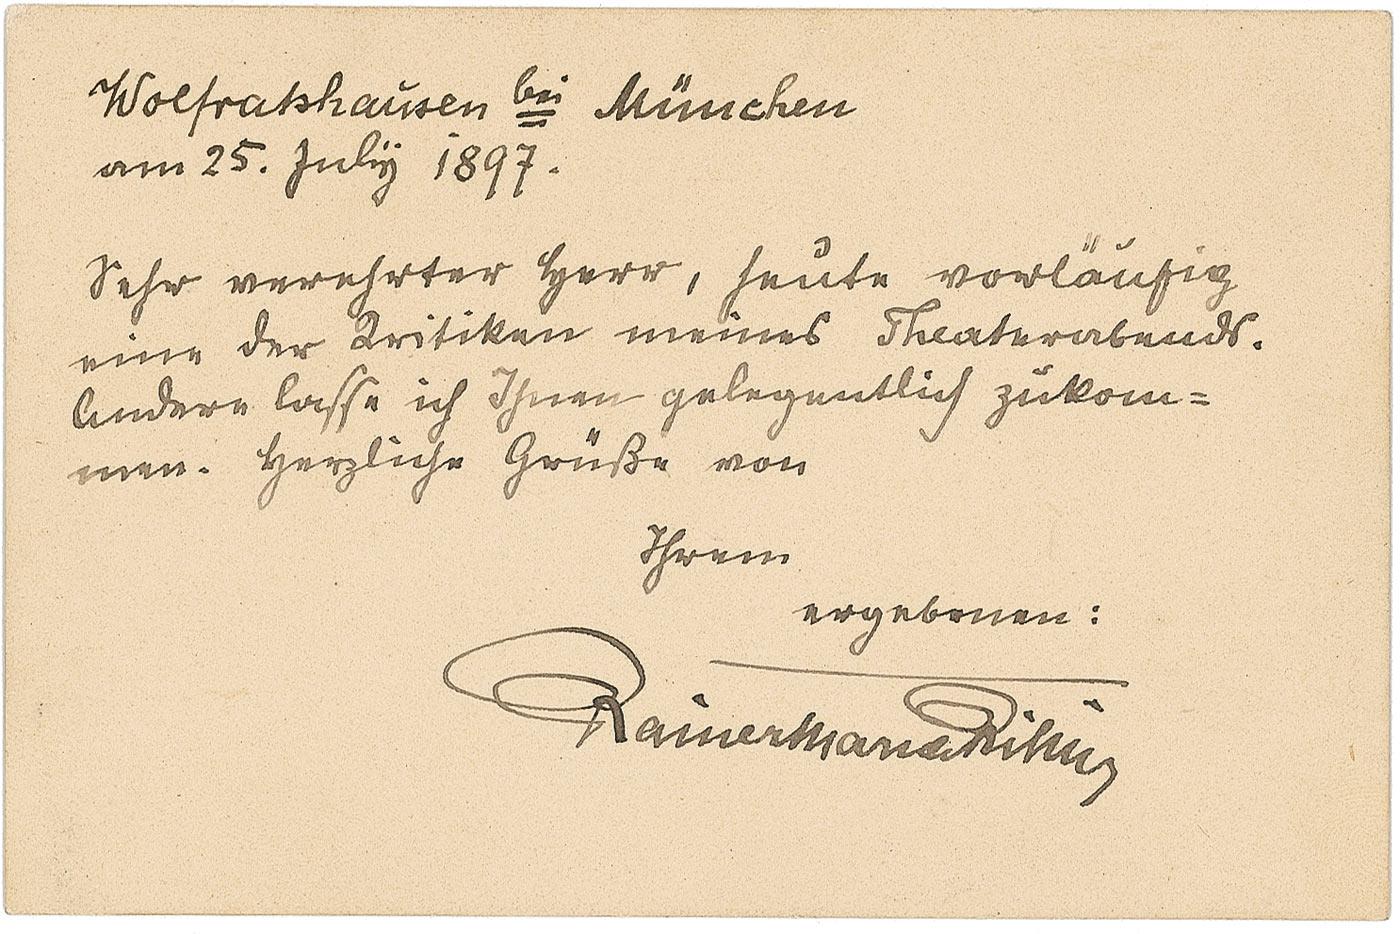 Wolfratshausen bei München
am 25. July 1897.
Sehr verehrter Herr, heute vorläufig
eine der Kritiken meines Theaterabends.
Andere lasse ich Ihnen gelegentlich zukom=
men. Herzliche Grüße von
Ihrem
ergebenen:
RainerMariaRilke